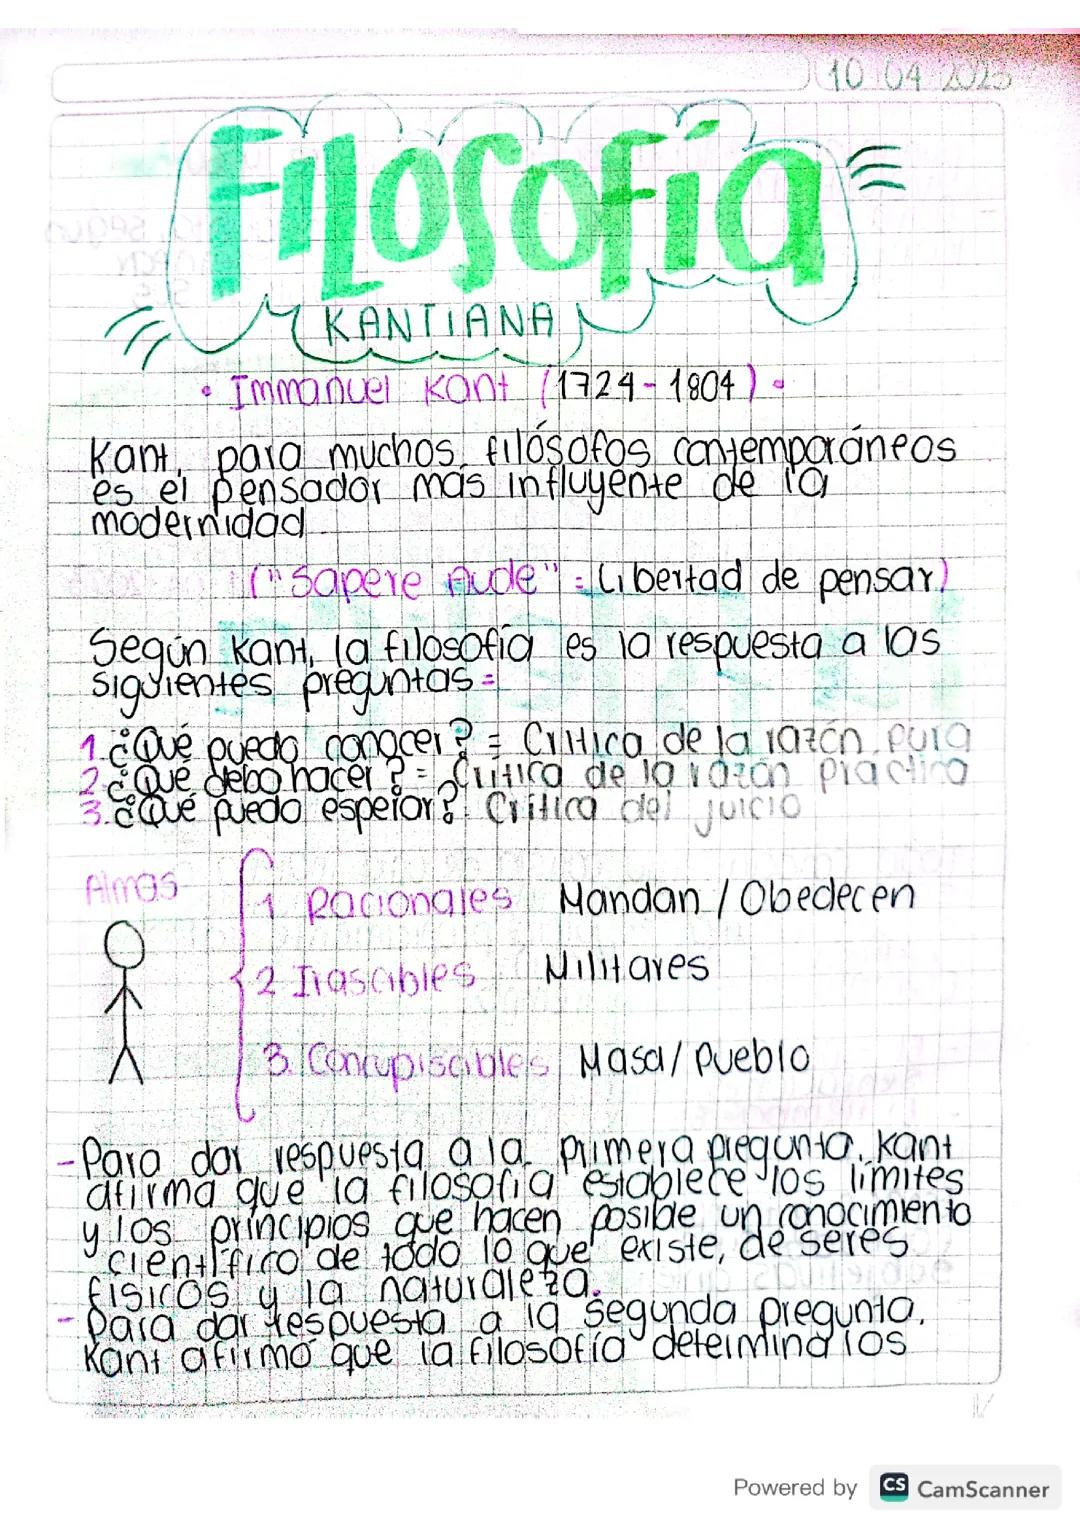 10 04 2025
Filosofía
KANTIANA
• Immanuel Kant (1724-1804) •
Kant, para muchos filósofos contemporáneos
es el pensador más influyente de la
modernidad
("Sapere Aude" = Libertad de pensar)
Según Kant, la filosofía es la respuesta a las
siguientes preguntas =
1. ¿Qué puedo conocer? = Crítica de la razón pura
2. ¿Qué debo hacer? = Crítica de la razón práctica
3. ¿Qué puedo esperar? Crítica del juicio
Almas
1 Racionales Mandan / Obedecen
2 Irascibles Militares
3. Concupiscibles Masa / Pueblo
- Para dar respuesta a la primera pregunta, Kant
afirma que la filosofía establece los límites
y los principios que hacen posible un conocimiento
científico de todo lo que existe, de seres
físicos y la naturaleza.
- Para dar respuesta a la segunda pregunta,
Kant afirmó que la filosofía determina los
Powered by CS CamScanner